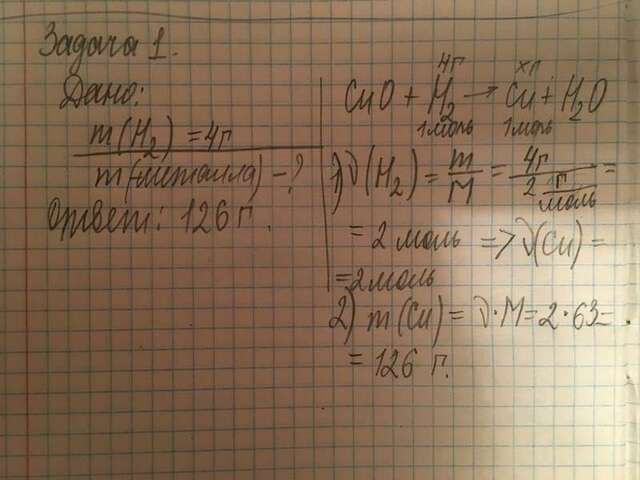 Задача 1.
Дано:
m(H₂) = 4г
m(металла) - ?
Ответ: 126 г.
4г xг
CuO + H₂ → Cu + H₂O
1моль 1моль
1) ν(H₂) = m/M = 4г/2 г/моль =
= 2 моль => ν(Cu) =
= 2 моль
2) m(Cu) = ν·M = 2·63 =
= 126 г.